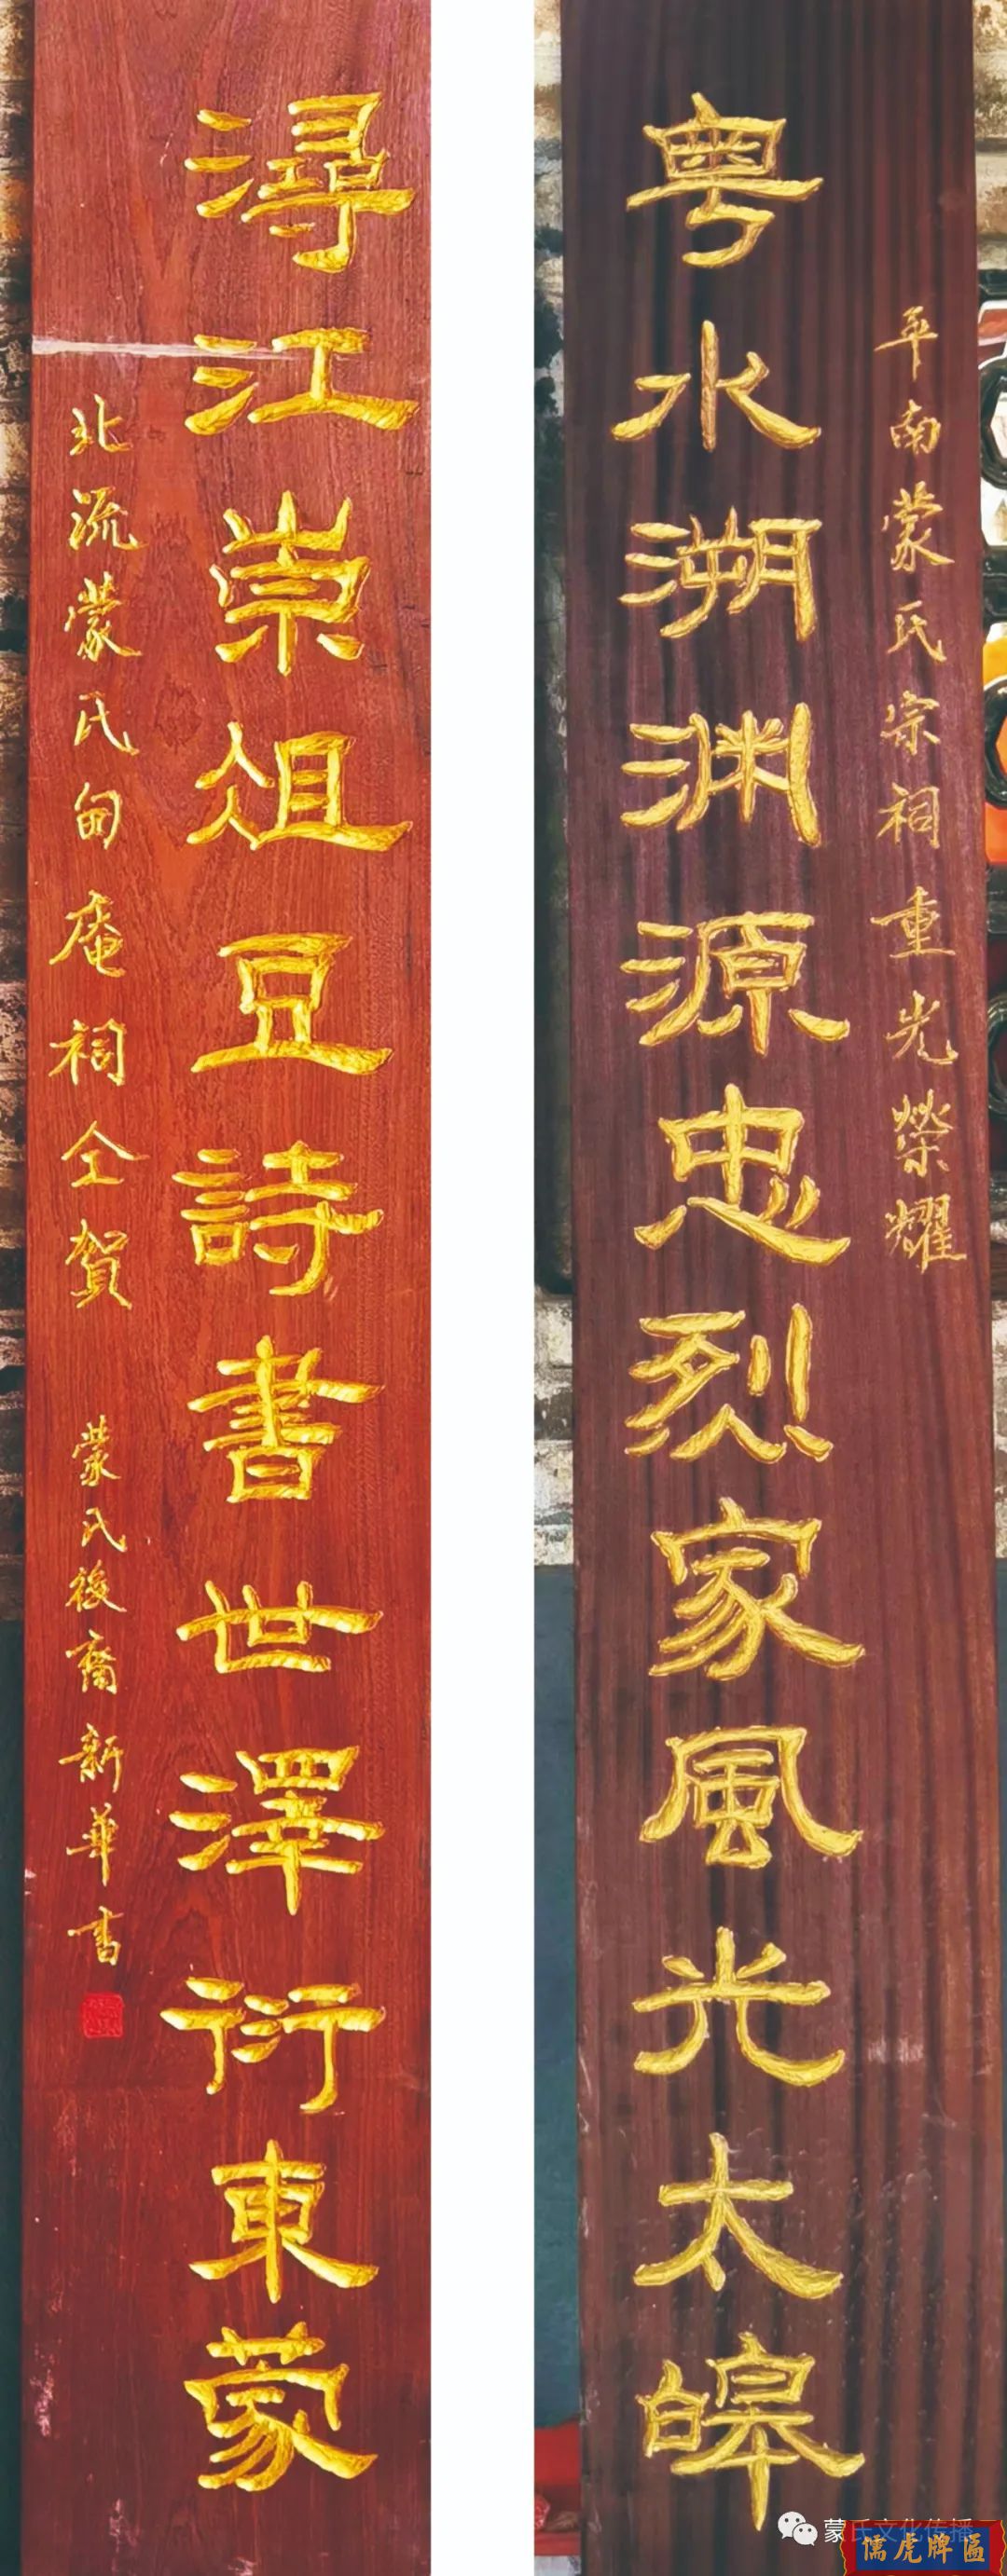 平南蒙氏宗祠重光榮耀
粤水溯渊源忠烈家風光太皞
潯江崇俎豆詩書世澤衍東蒙
北流蒙氏甸庵祠仝賀 蒙氏後裔新華書
蒙氏文化传播
儒虎牌匾